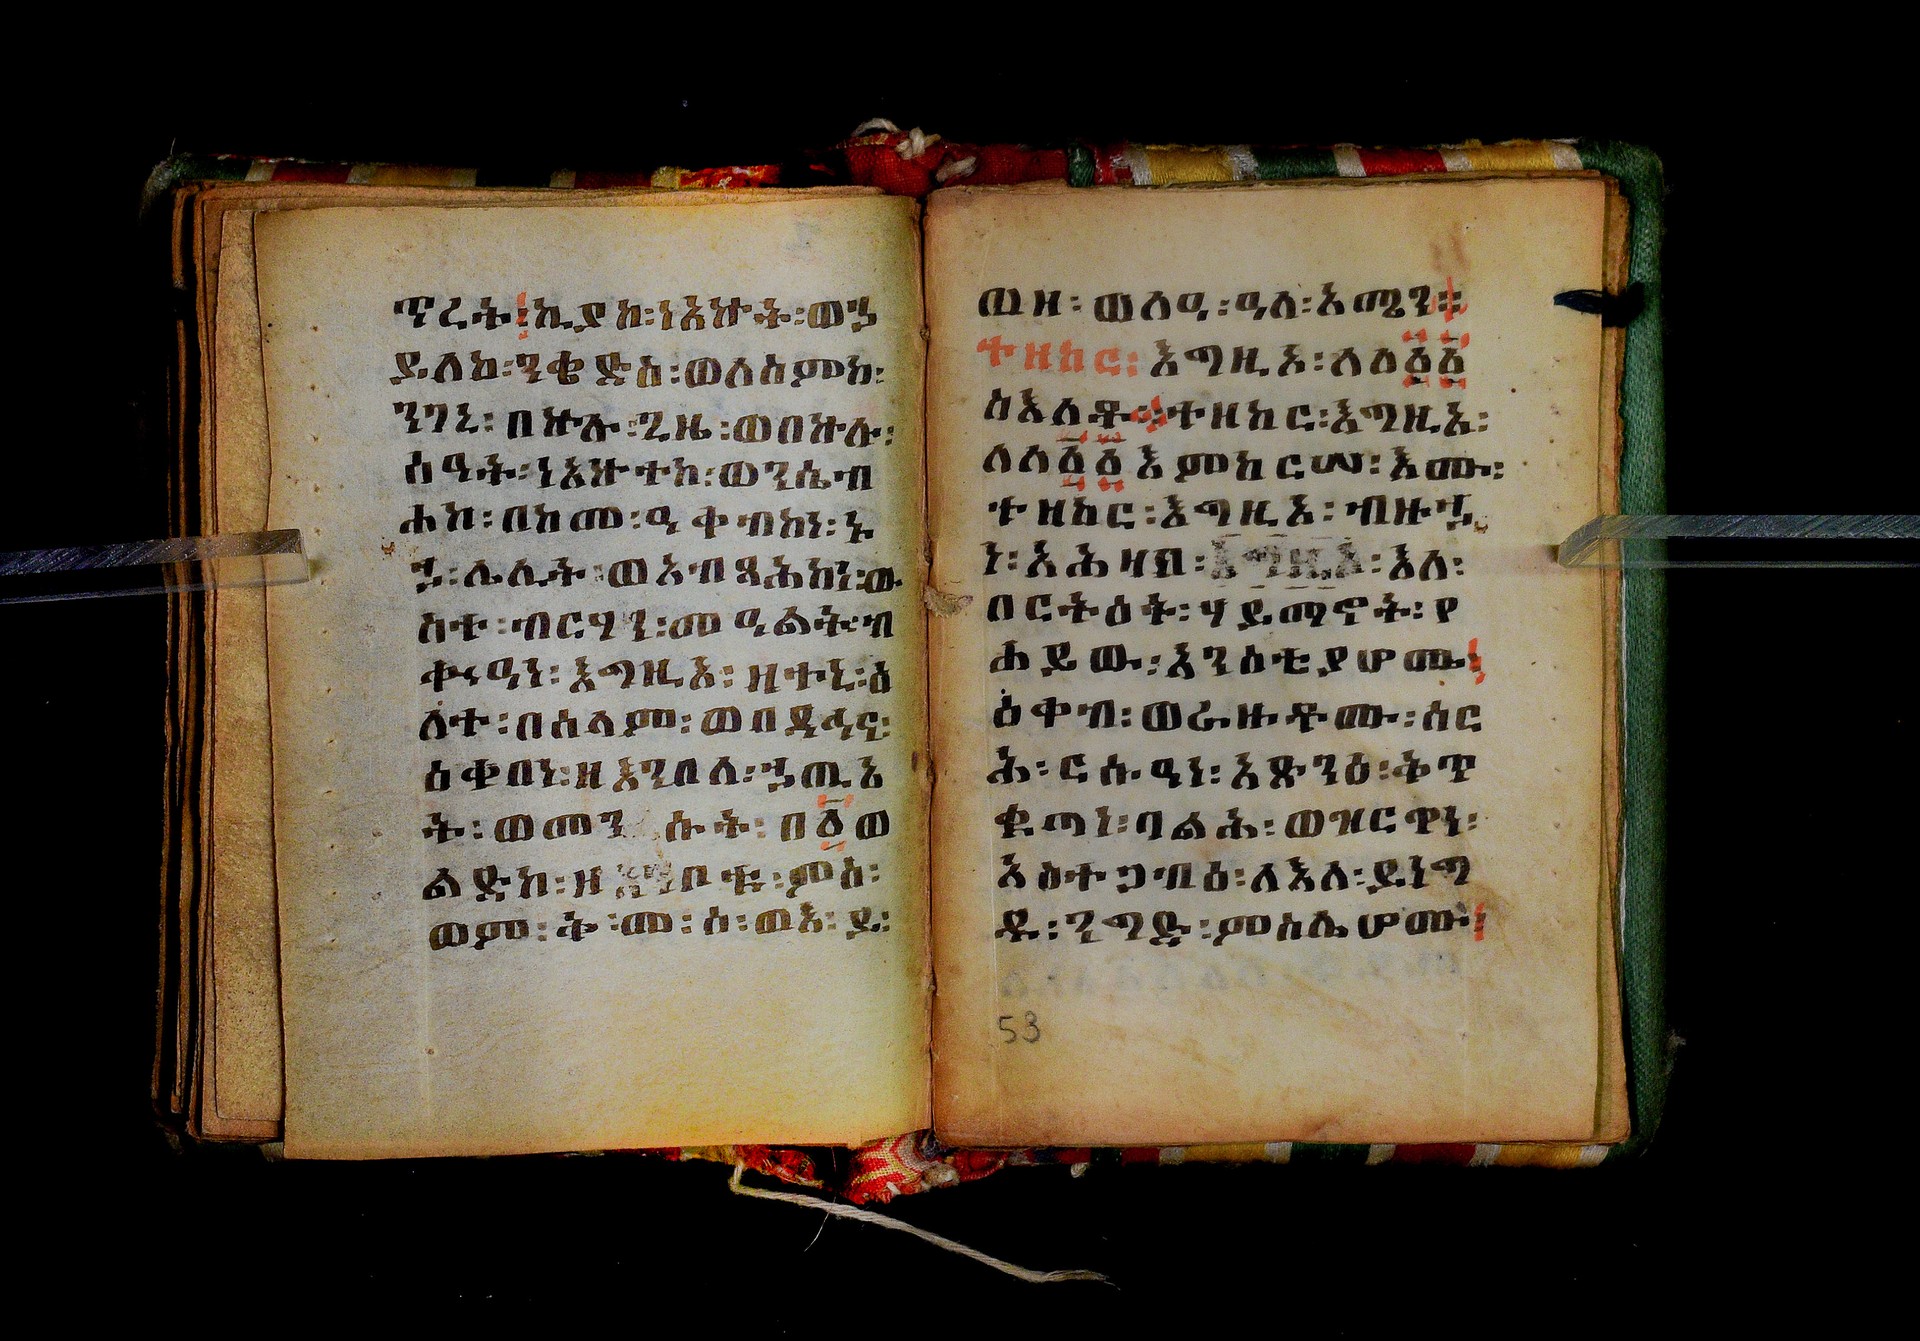 ጥረት፡ኪያከ፡ነአኵት፡ወኃ
ይለከ፡ንቄድስ፡ወለስምከ፡
ንገኒ፡በኵሉ፡ጊዜ፡ወበኵሉ፡
ሰዓት፡ነአኵተከ፡ወንሴብ
ሐከ፡በከመ፡ዓቀብከነ፡ኑ
ኃ፡ሌሊት፡ወአብጻሕከነ፡ው
ስተ፡ብርሃን፡መዓልት፡ብ
ቍዓነ፡እግዚእ፡ዘተኒ፡ዕ
ለተ፡በሰላም፡ወበዳኅና፡
ዕቀበነ፡ዘእንበለ፡ኃጢአ
ት፡ወመንሱት፡በ፩ወ
ልድከ፡ዘ ቦቱ፡ምስ፡
ወም፡ቅ፡መ፡ስ፡ወእ፡ይ፡
ዜዘ፡ወለዓ፡ዓለ፡አሜን።
ተዘከር፡እግዚእ፡ለዕ፩፩
ስእለቶ፡ተዘከር፡እግዚእ፡
ለለ፩፩እምከርሠ፡እሙ፡
ተዘከር፡እግዚእ፡ብዙኃ
ነ፡አሕዛበ፡እግዚእ፡እለ፡
በርትዕት፡ሃይማኖት፡የ
ሐይው፡እንስቲያሆሙ፡
ዕቀብ፡ወራዙቶሙ፡ሰር
ሕ፡ርሱዓነ፡አጽንዕ፡ቅጥ
ቁጣነ፡ባልሕ፡ወዝርጥነ፡
አስተጋብዕ፡ለእለ፡ይነግ
ዱ፡ንግድ፡ምስሌሆሙ፡
53